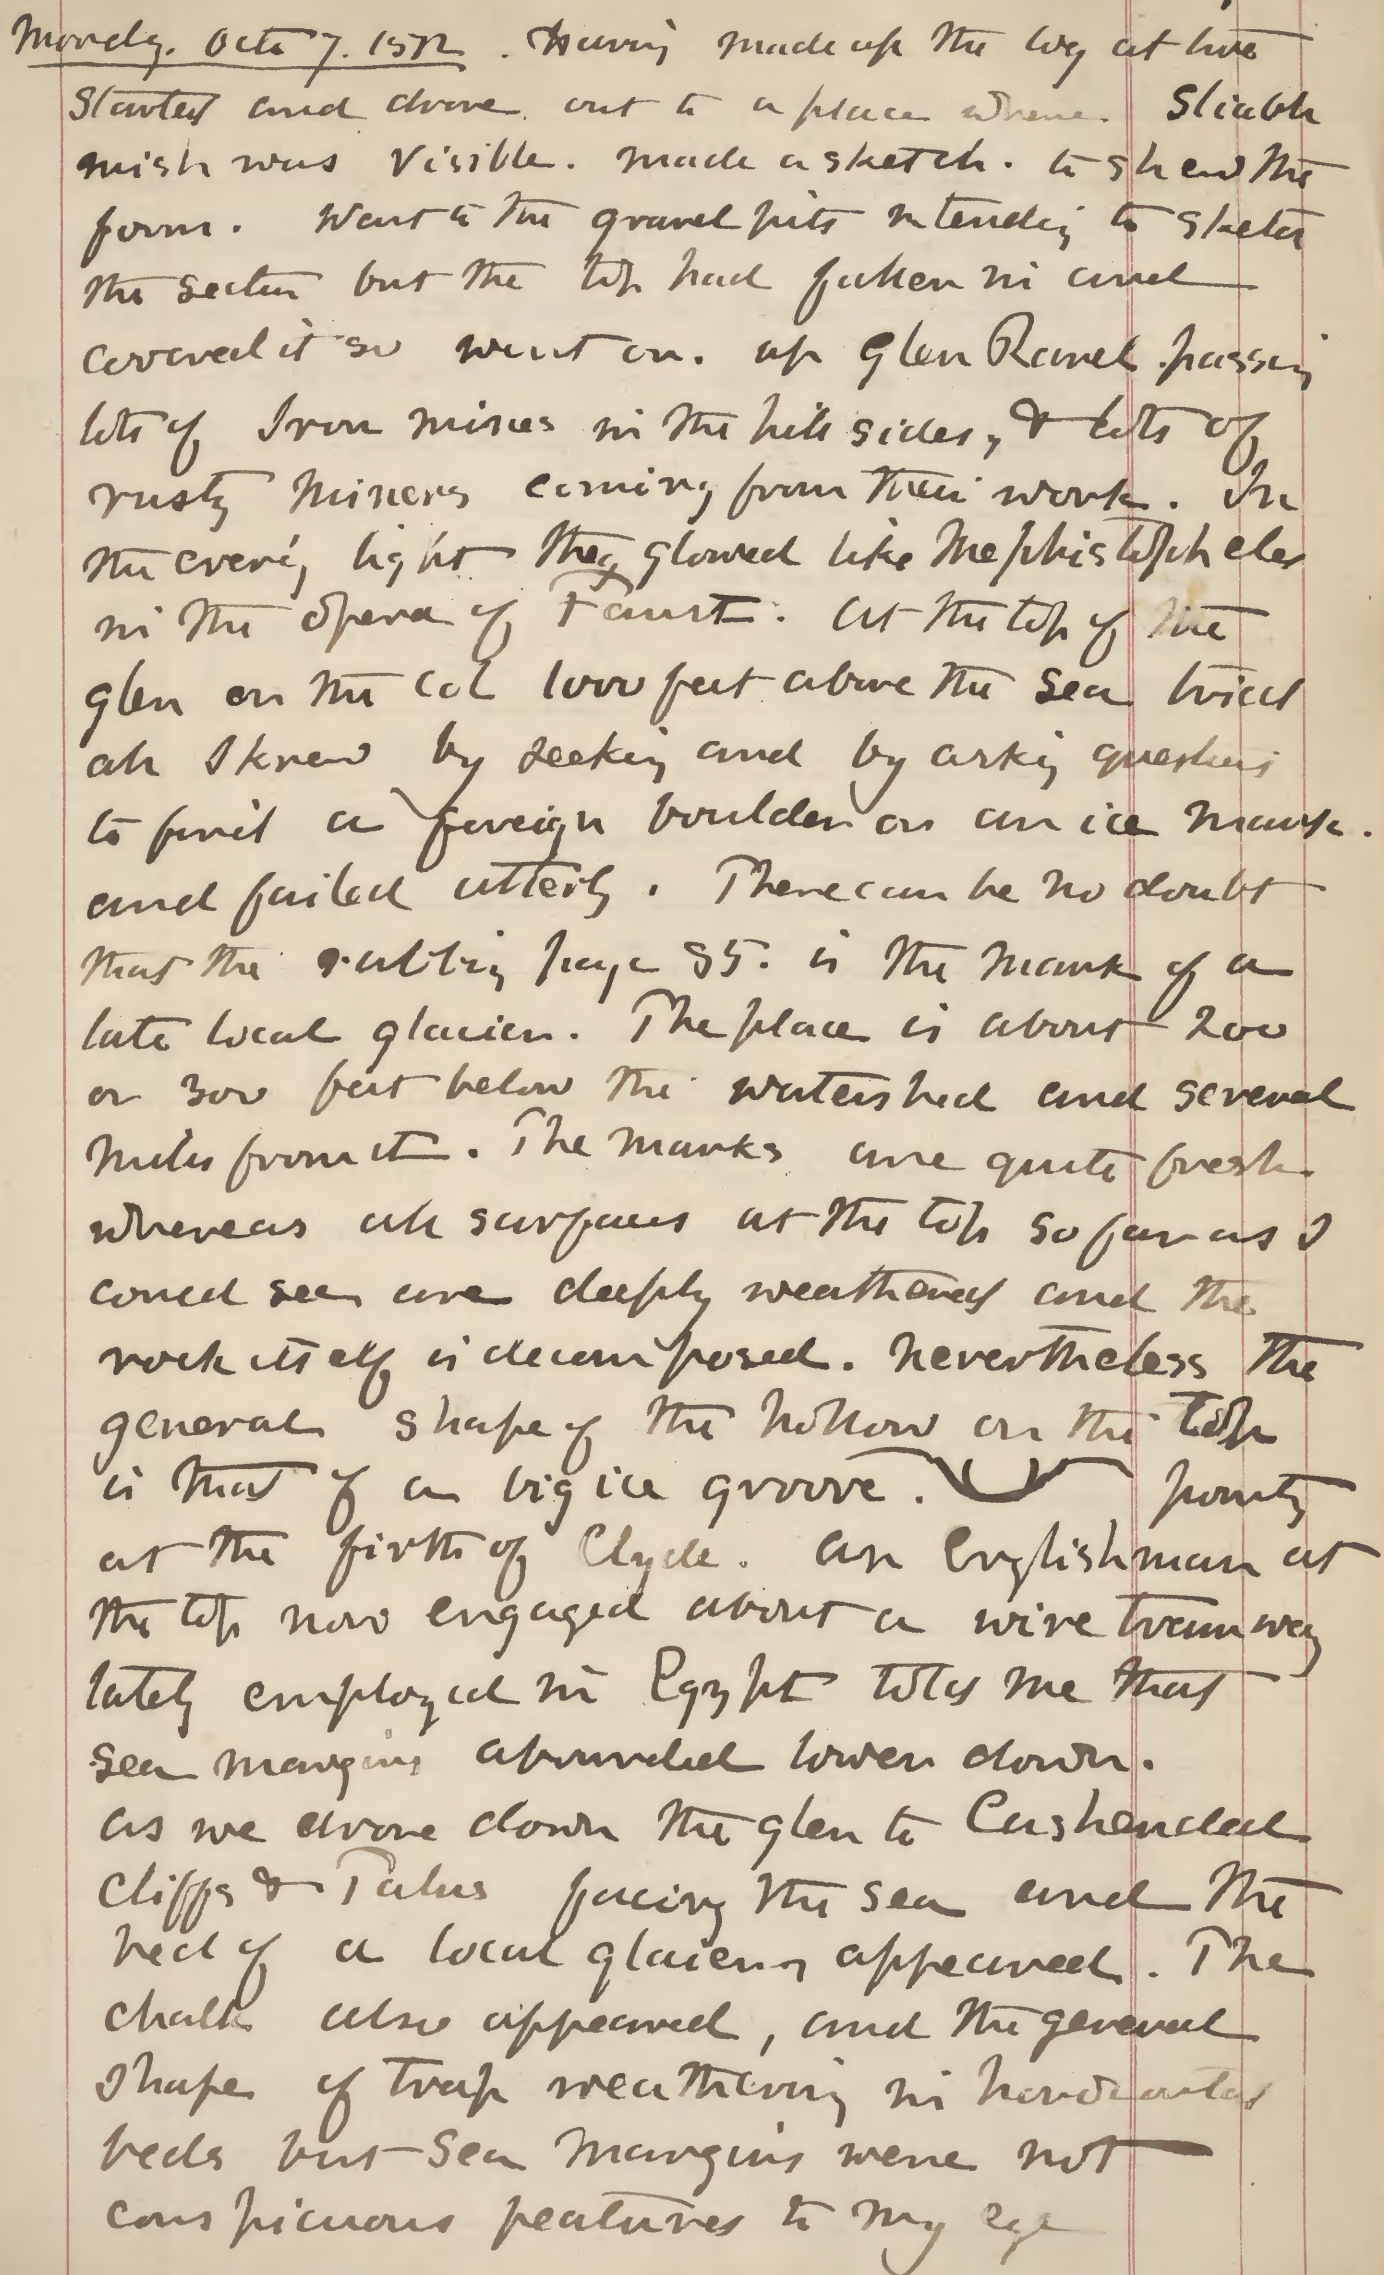 Monday. Octr 7. 1872. Having made up the log at two
started and drove out to a place where Sliabh
mish was visible. made a sketch. to shew the
form. Went to the gravel pits intending to sketch
the section but the top had fallen in and
covered it so went on. up Glen Ravel passing
lots of Iron mines in the hill sides, & lots of
rusty miners coming from their work. In
the evening light they glowed like Mephistopheles
in the opera of Faust. At the top of the
glen on the col 1000 feet above the sea tried
all I knew by seeking and by asking questions
to find a foreign boulder or an ice mark.
and failed utterly. There can be no doubt
that the rubbing page 85. is the mark of a
late local glacier. The place is about 200
or 300 feet below the watershed and several
miles from it. The marks are quite fresh
whereas all surfaces at the top so far as I
could see are deeply weathered and the
rock itself is decomposed. Nevertheless the
general shape of the hollow on the top
is that of a big ice groove. pointing
at the firth of Clyde. An Englishman at
the top now engaged about a wire tramway
lately employed in Egypt told me that
sea margins abounded lower down.
As we drove down the glen to Cushendall
Cliffs & Talus facing the sea and the
bed of a local glacier, appeared. The
chalk also appeared, and the general
shape of trap weathering in horizontal
beds but sea margins were not
conspicuous features to my eye